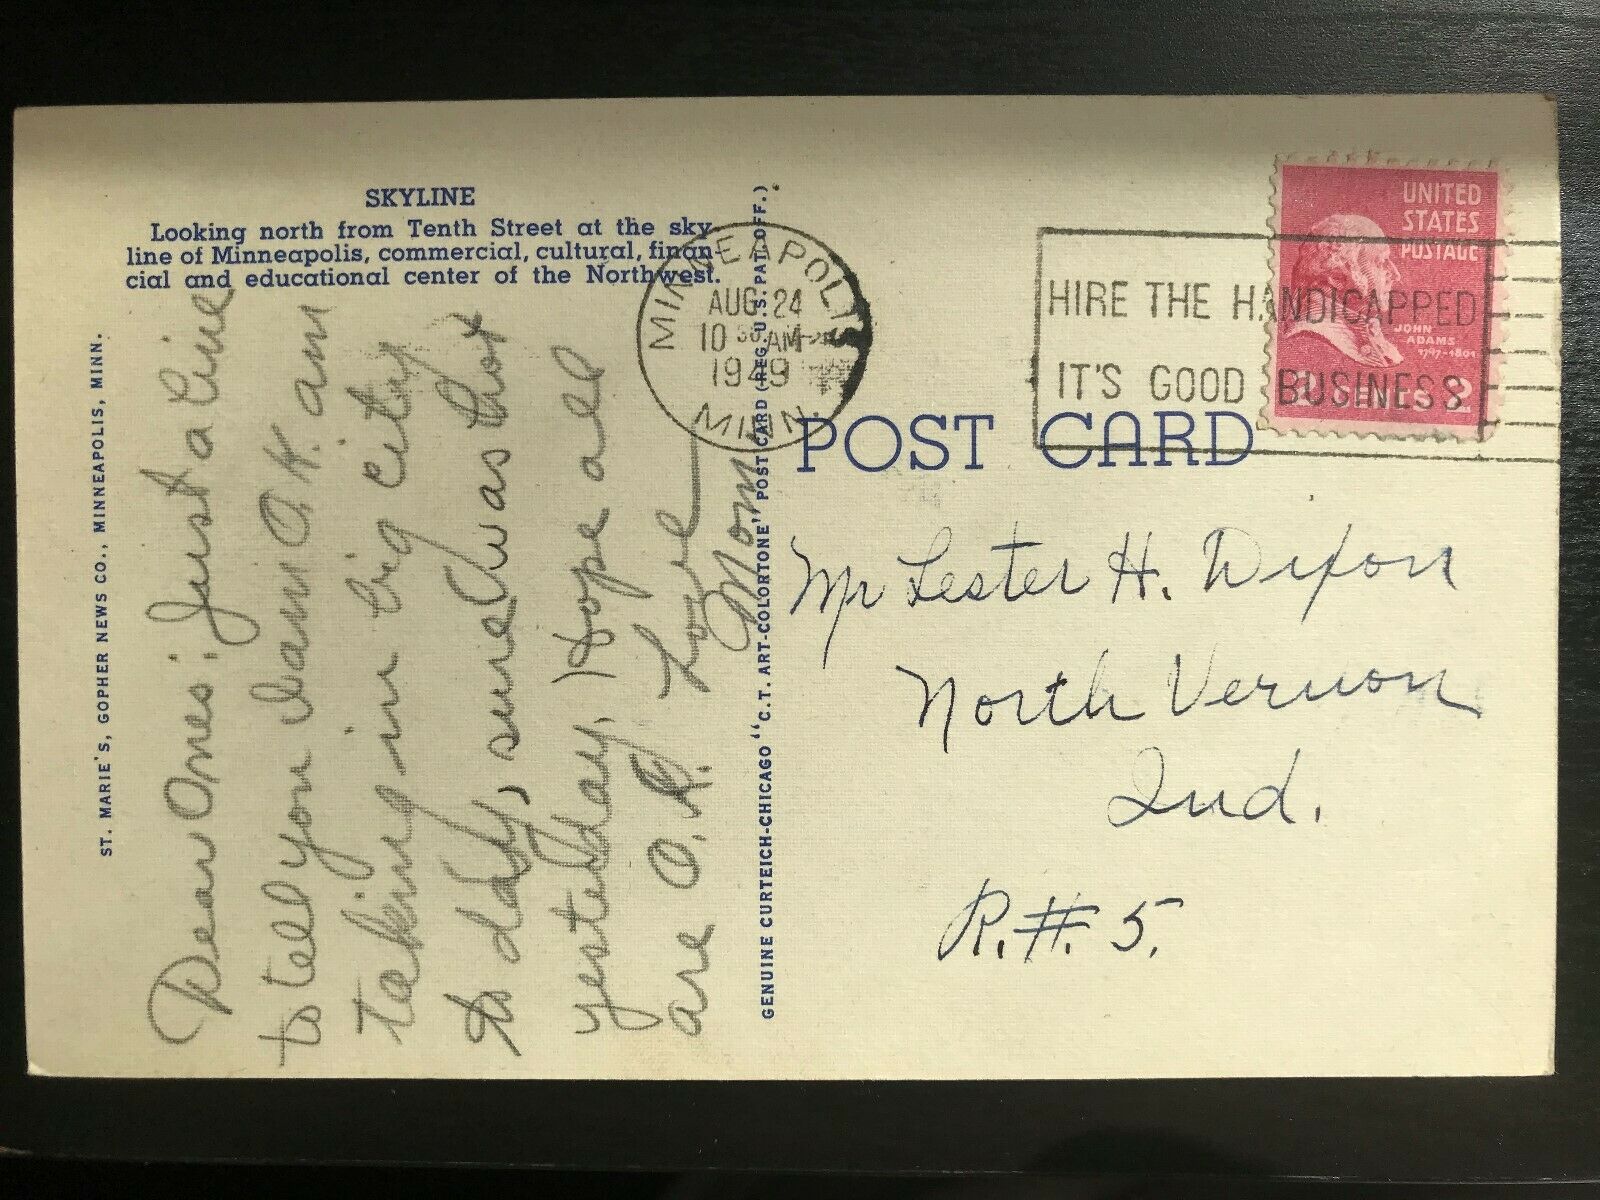 SKYLINE
Looking north from Tenth Street at the sky-
line of Minneapolis, commercial, cultural, finan-
cial and educational center of the Northwest.
ST. MARIE'S, GOPHER NEWS CO., MINNEAPOLIS, MINN.
Dear Ones: Just a line
to tell you I am O.K. am
taking in big city
to day, sure was hot
yesterday. Hope all
are O.K. Love
Mom
GENUINE CURTEICH-CHICAGO "C.T. ART-COLORTONE" POST CARD (REG. U.S. PAT. OFF.)
MINNEAPOLIS
AUG 24
10 30 AM
1949
MINN.
HIRE THE HANDICAPPED
IT'S GOOD BUSINESS
UNITED
STATES
POSTAGE
JOHN
ADAMS
1797-1801
2
POST CARD
Mr Lester H. Dixon
North Vernon
Ind.
R.#. 5.